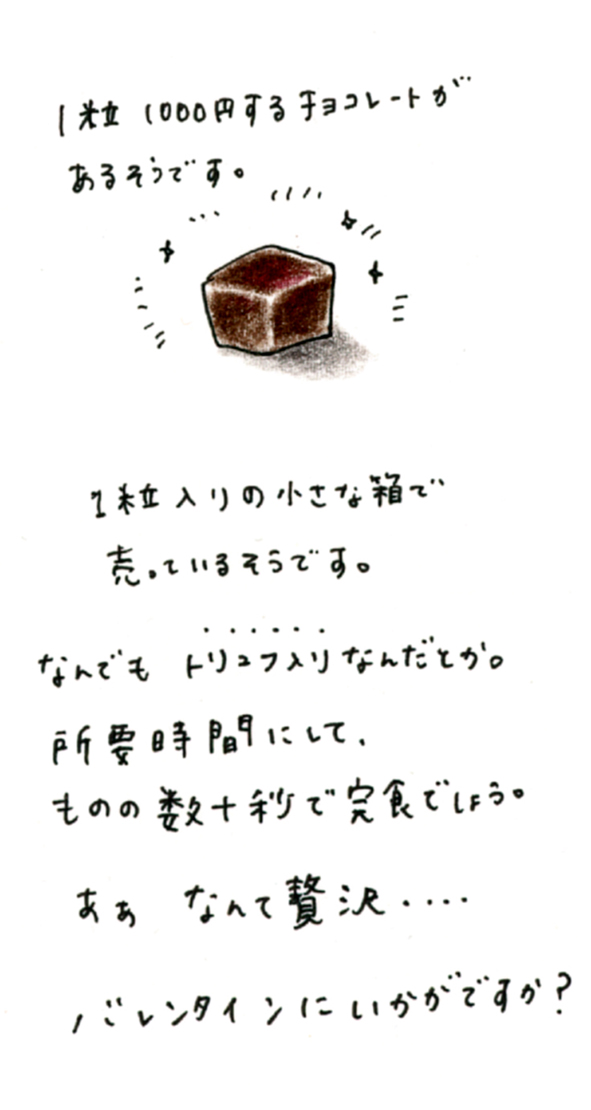 1粒 1000円するチョコレートが
あるそうです。
1粒入りの小さな箱で
売っているそうです。
なんでも トリュフ入りなんだとか。
所要時間にして、
ものの数十秒で完食でしょう。
あぁ なんて贅沢・・・・
バレンタインにいかがですか？